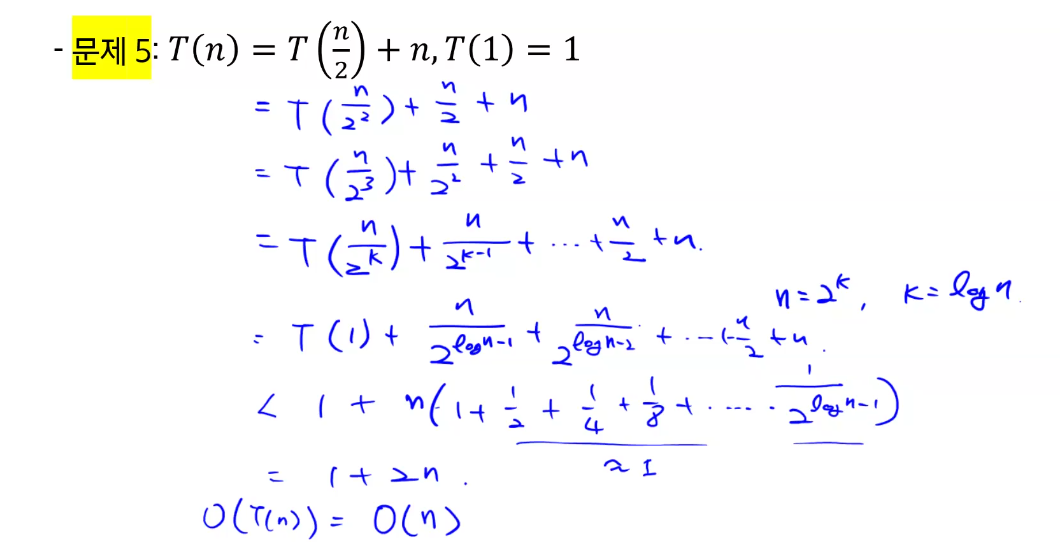 - 문제 5: T(n) = T(n/2) + n, T(1) = 1
= T(n/2²) + n/2 + n
= T(n/2³) + n/2² + n/2 + n
= T(n/2^k) + n/2^(k-1) + ... + n/2 + n.
n = 2^k, k = log n.
= T(1) + n/2^(log n-1) + n/2^(log n-2) + ... + n/2 + n.
< 1 + n(1 + 1/2 + 1/4 + 1/8 + ...... 1/2^(log n-1))
≈ 1
= 1 + 2n.
O(T(n)) = O(n)